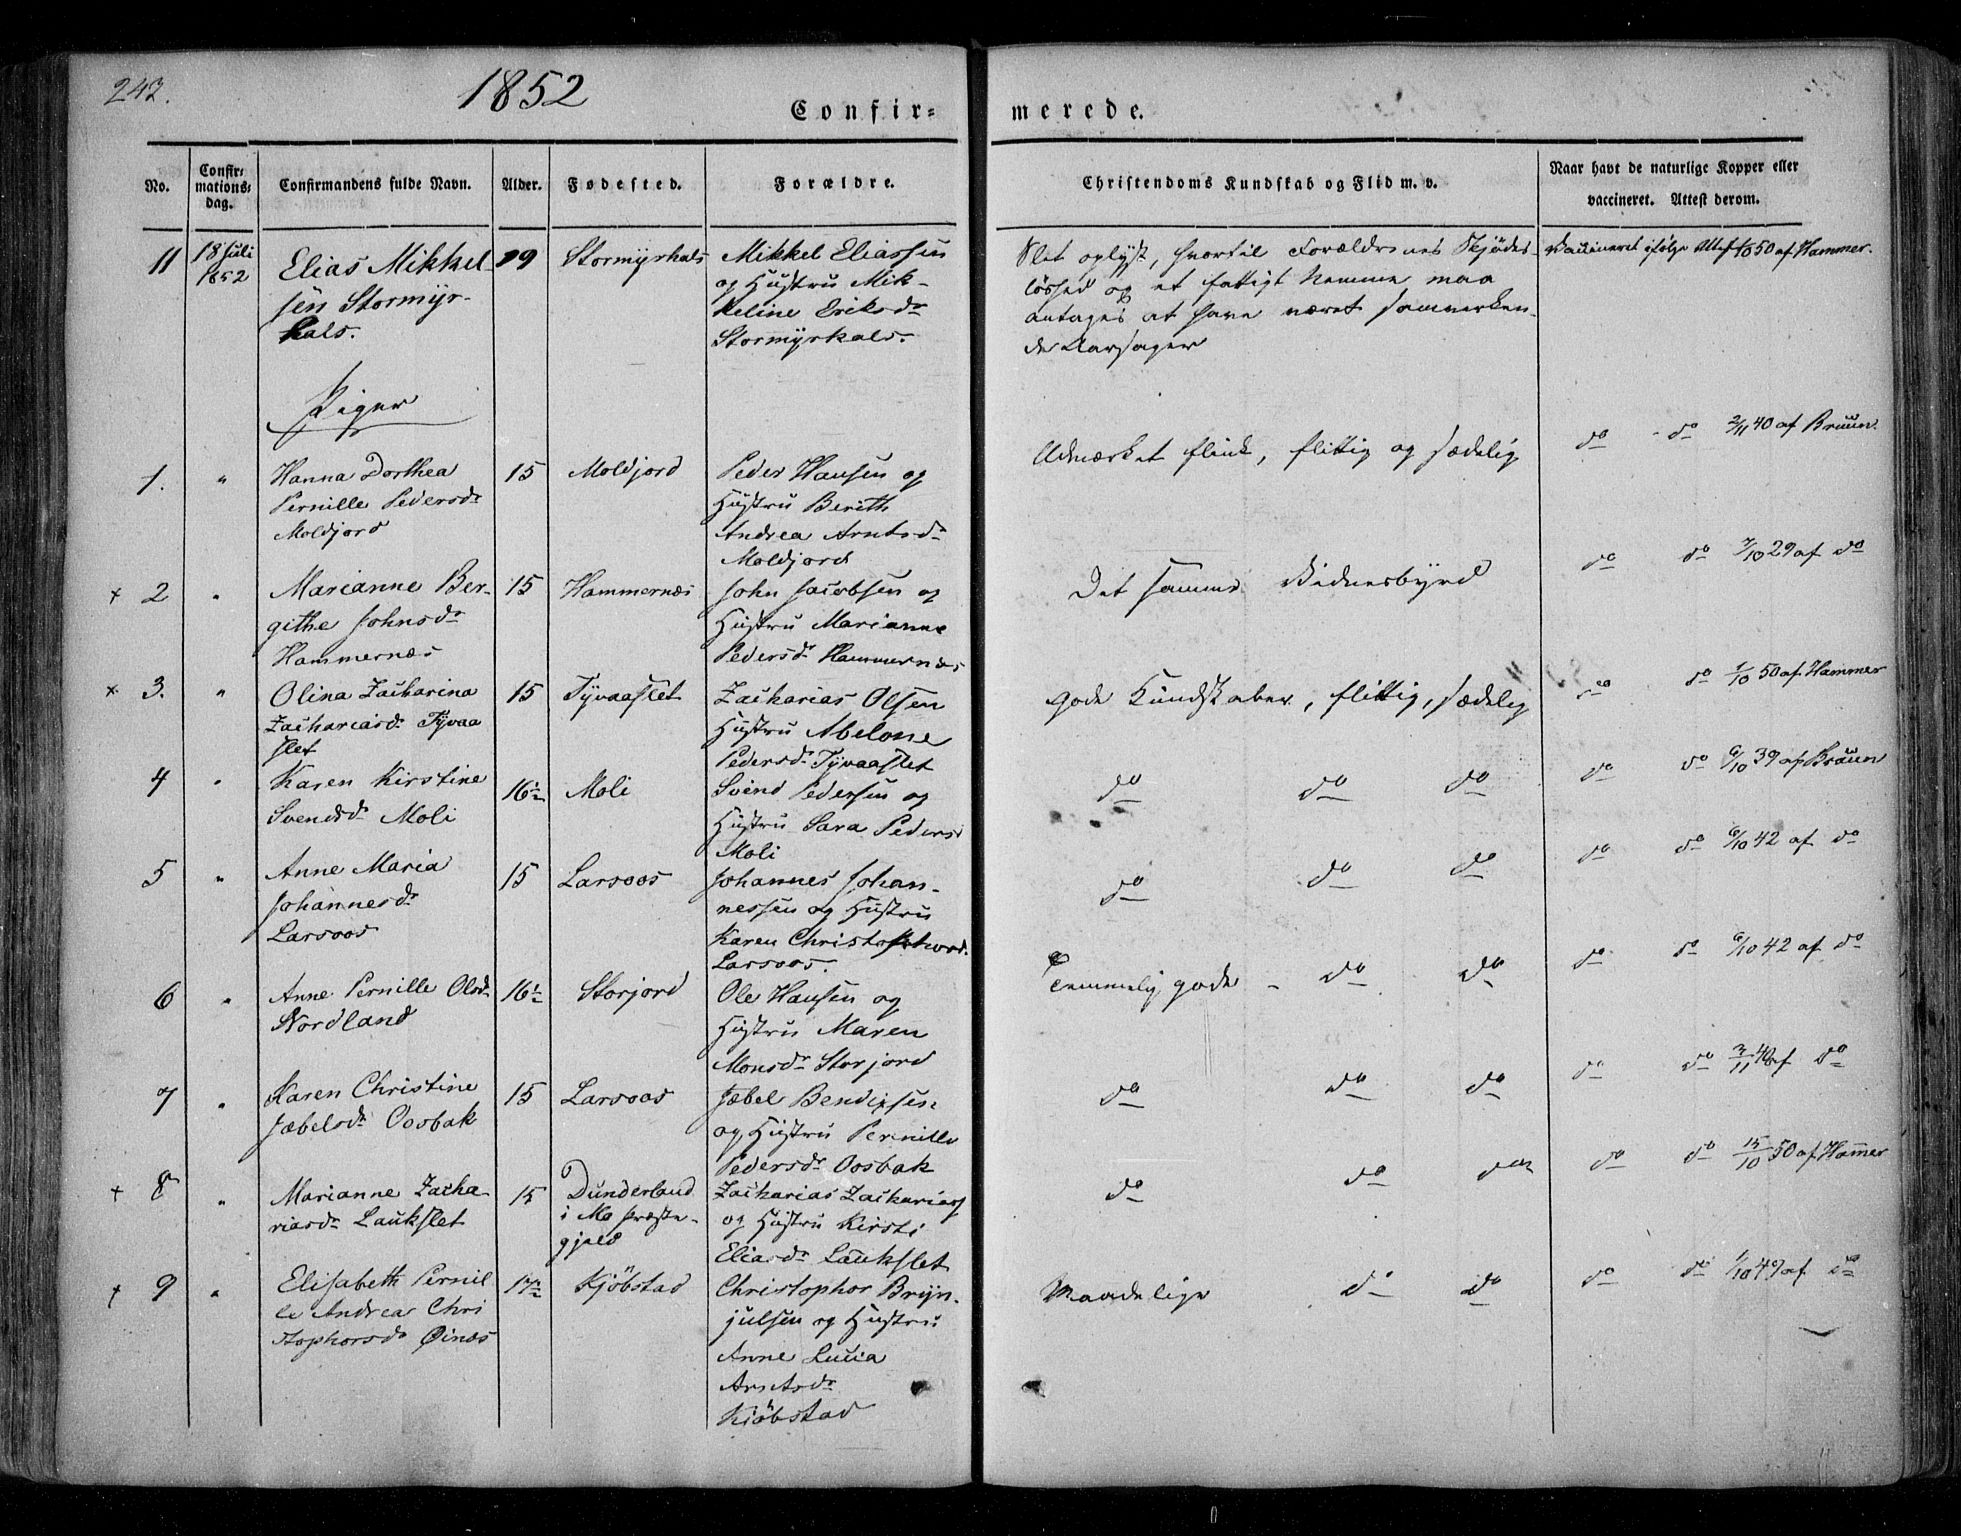 243.
1852
Confir-
merede.
No.
Confir-
mations-
dag.
Confirmandens fulde Navn.
Alder.
Fødested.
Forældre.
Christendoms Kundskab og Flid m. v.
Naar havt de naturlige Kopper eller
vaccineret. Attest derom.
11
18 Juli
1852
Elias Mikkel-
sen Stormyr-
hals.
19
Stormyrhals
Mikkel Eliassen
og Hustru Mik-
keline Eriksdr
Stormyrhals.
Slet oplyst, hvortil Forældrenes Skjødes-
løshed og et fattigt Nemme maa
antages at have været samvirken-
de Aarsager
Vaccineret ifølge Attest 50 af Hammer.
Piger
1.
"
Hanna Dorthea
Pernille Pedersdr
Moldjord
15
Moldjord
Peder Hansen og
Hustru Berith
Andrea Arntsdr
Moldjord
Udmærket flink, flittig og sædelig
do - do 2/11 40 af Bruun.
+ 2
"
Marianne Ber-
githe Johnsdr
Hammernæs
15
Hammernæs
John Jacobsen og
Hustru Marianne
Pedersdr Hammernæs
Det samme Vidnesbyrd
do do 7/10 29 af do
x 3.
"
Olina Zacharina
Zachariasdr Tyvaa
slet
15
Tyvaaslet
Zacharias Olsen
Hustru Abelone
Pedersdr Tyvaaslet
gode Kundskaber, flittig, sædelig
do do 1/10 50 af Hammer
4
"
Karen Kirstine
Svendsdr Moli
16½
Moli
Svend Pedersen og
Hustru Sara Pedersd
Moli
do do do
do do 6/10 39 af Bruun
5
"
Anne Maria
Johannesdr
Larsoos
15
Larsoos
Johannes Johan-
nessen og Hustru
Karen Christophersd.
Larsoos.
do do do
do do 6/10 42 af do
6
"
Anne Pernille Olsdr
Nordland
16½
Storjord
Ole Hansen og
Hustru Maren
Monsdr Storjord
Temmelig gode - do do
do do 6/10 42 af do
7
"
Karen Christine
Jæbelsdr Oosbak
15
Larsoos
Jæbel Bendixsen
og Hustru Pernille
Pedersdr Oosbak
do do do
do do 2/11 40 af do
+ 8
"
Marianne Zacha-
riasdr Laukslet
15
Dunderland
i Mo Præste-
gjeld
Zacharias Zachariass
og Hustru Kirsti
Eliasdr Laukslet
do do do
do do 15/10 50 af Hammer
+ 9
"
Elisabeth Pernil
le Andrea Chri
stophersdr Øinæs
17½
Kjöbstad
Christopher Bryn-
julsen og Hustru
Anne Lucia
Arntsdr
Kjöbstad
Maadelige do do
do do 1/10 49 af do